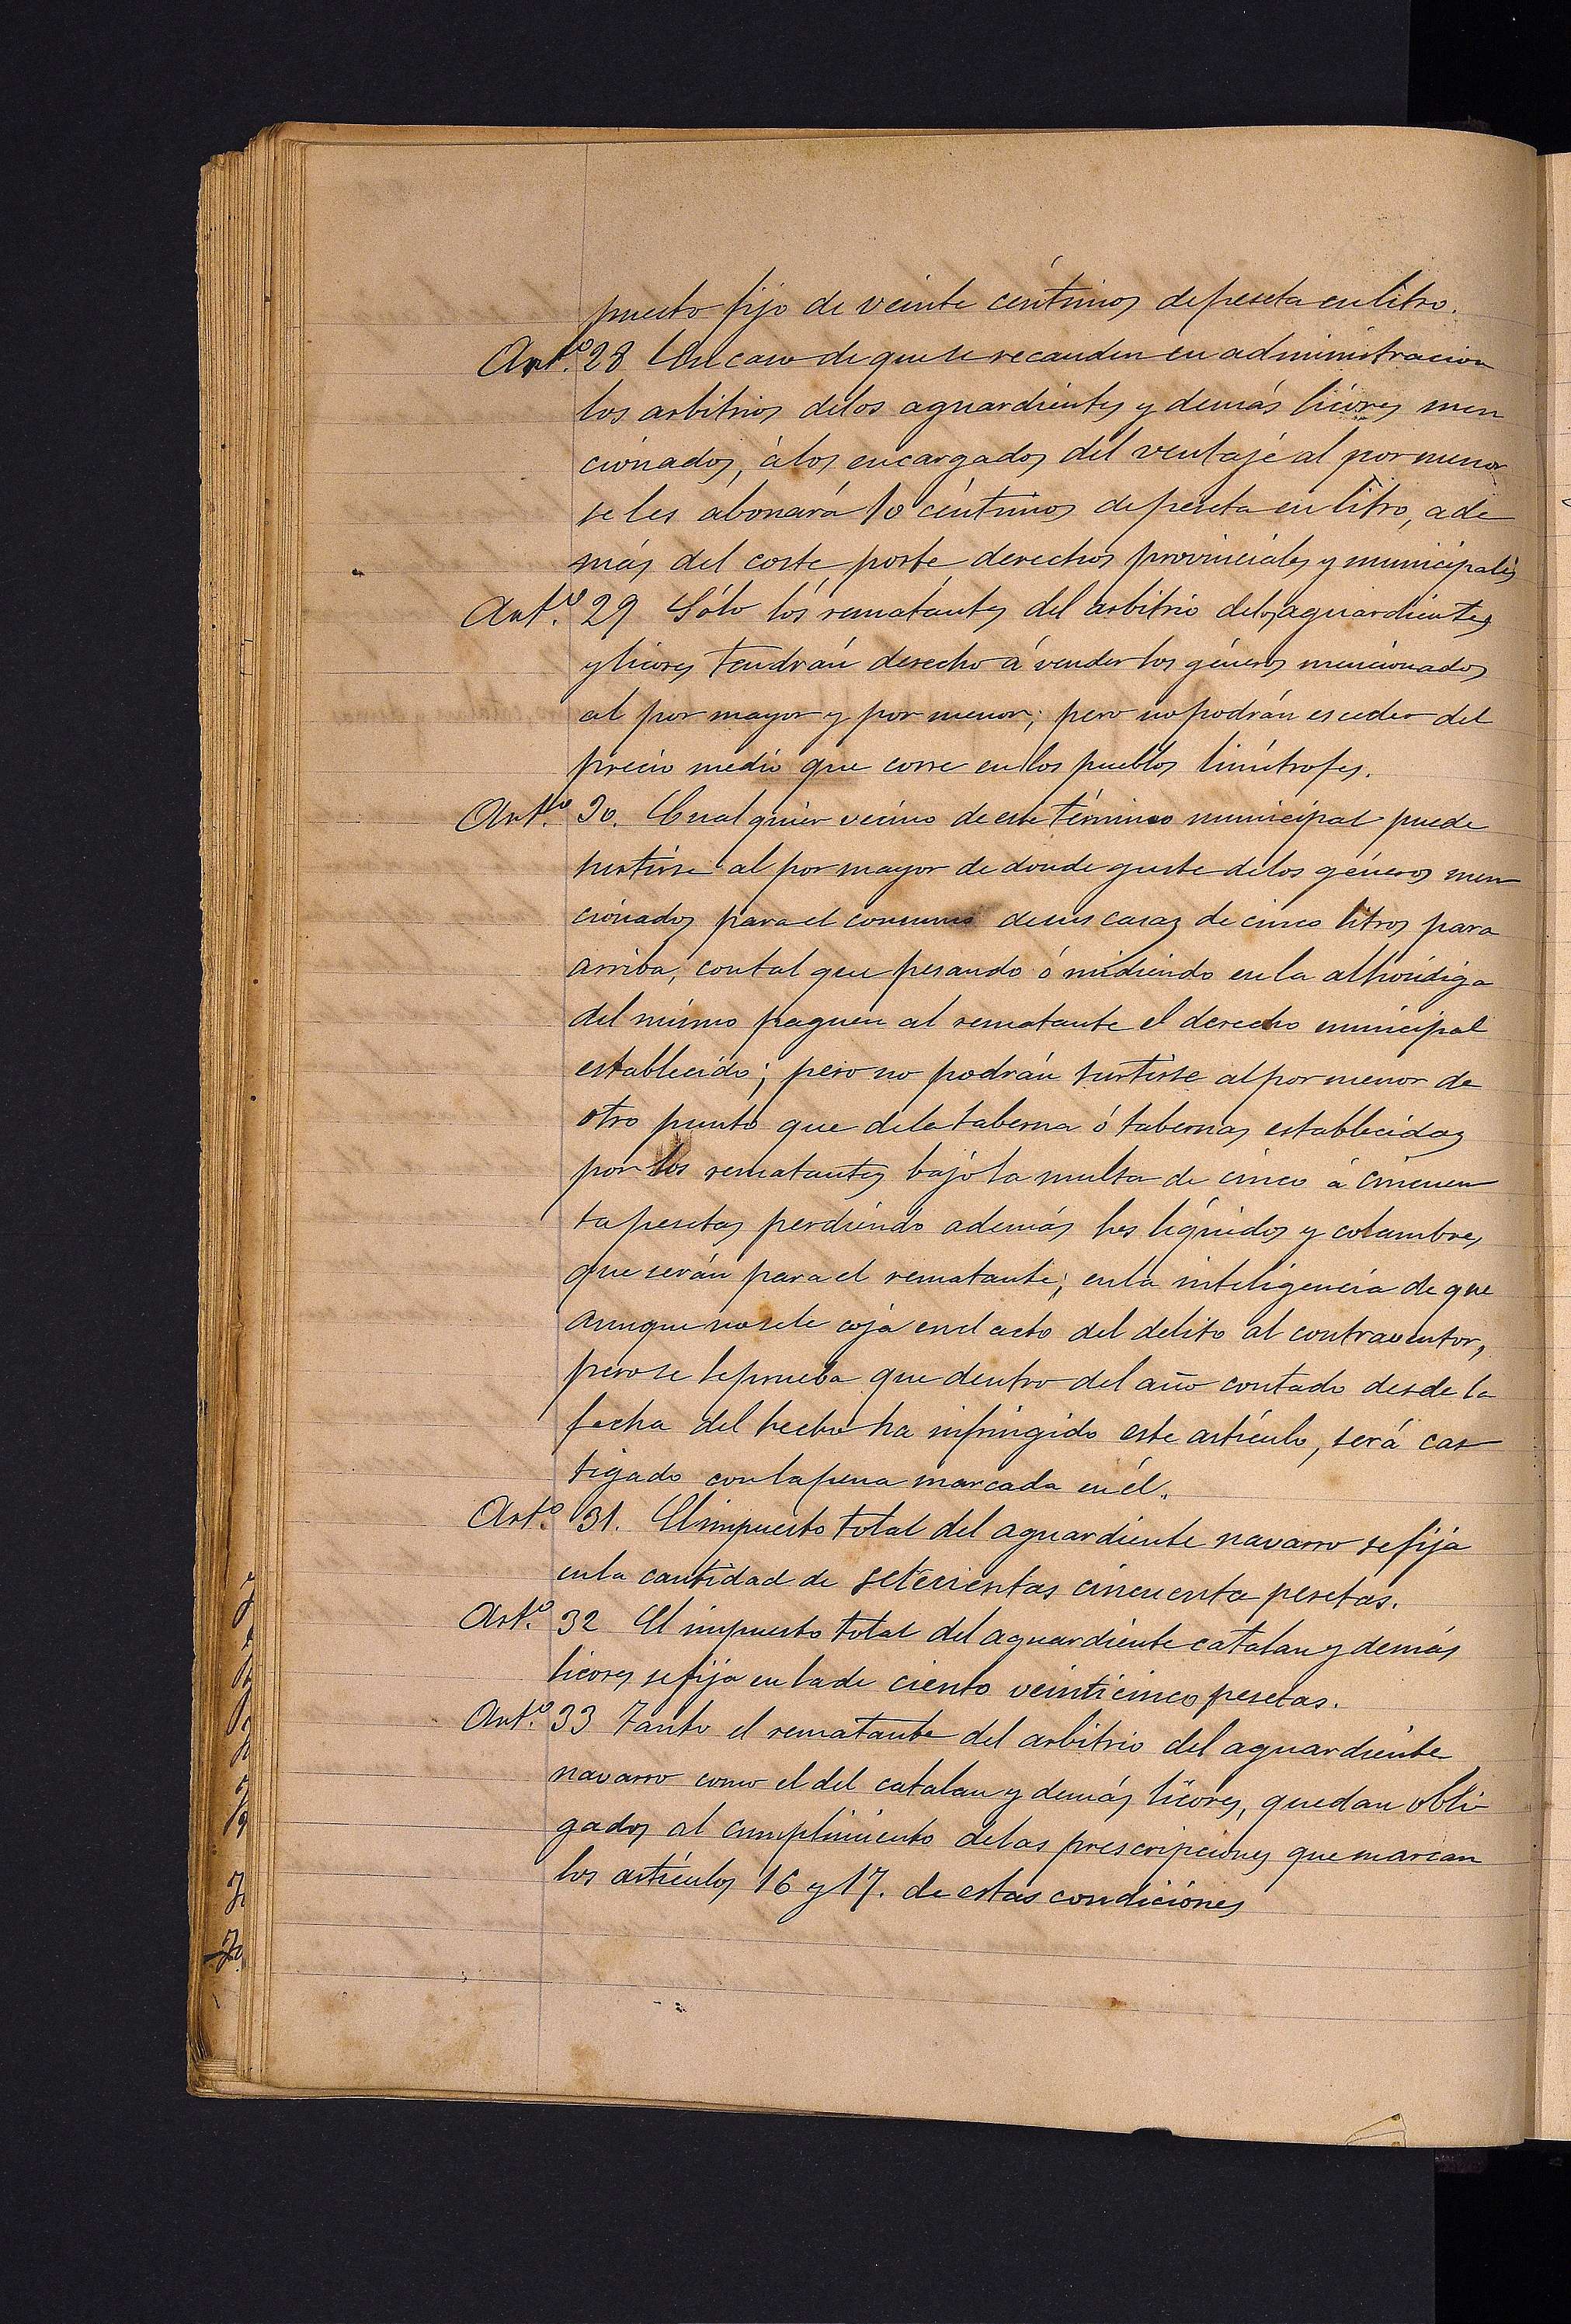 puesto fijo de veinte céntimos de peseta en litro.
Art.º 28 En caso de que se recauden en administracion
los arbitrios de los aguardientes y demás licores men
cionados, á los encargados del ventaje al por menor
se les abonará 10 céntimos de peseta en litro, ade
más del coste, porte, derechos provinciales y municipales
Art.º 29 Sólo los rematantes del arbitrio de los aguardientes
y licores tendrán derecho á vender los géneros mencionados
al por mayor y por menor; pero no podrán esceder del
precio medio que corre en los pueblos limítrofes.
Art.º 30. Cualquier vecino de este término municipal puede
surtirse al por mayor de donde guste de los géneros men
cionados para el consumo de sus casas de cinco litros para
arriba, con tal que pesando ó midiendo en la alhóndiga
del mismo paguen al rematante el derecho municipal
establecido; pero no podrán surtirse al por menor de
otro punto que de la taberna ó tabernas establecidas
por los rematantes bajo la multa de cinco á cincuen
ta pesetas perdiendo además los líquidos y colambres
que serán para el rematante; en la inteligencia de que
aunque no se le coja en el acto del delito al contraventor,
pero se le prueba que dentro del año contado desde la
fecha del hecho ha infringido este artículo, será cas
tigado con la pena marcada en él.
Art.º 31. El impuesto total del aguardiente navarro se fija
en la cantidad de setecientas cincuenta pesetas.
Art.º 32 El impuesto total del aguardiente catalan y demás
licores se fija en la de ciento veinticinco pesetas.
Art.º 33 Tanto el rematante del arbitrio del aguardiente
navarro como el del catalan y demás licores, quedan obli
gados al cumplimiento de las prescripciones que marcan
los artículos 16 y 17. de estas condiciones